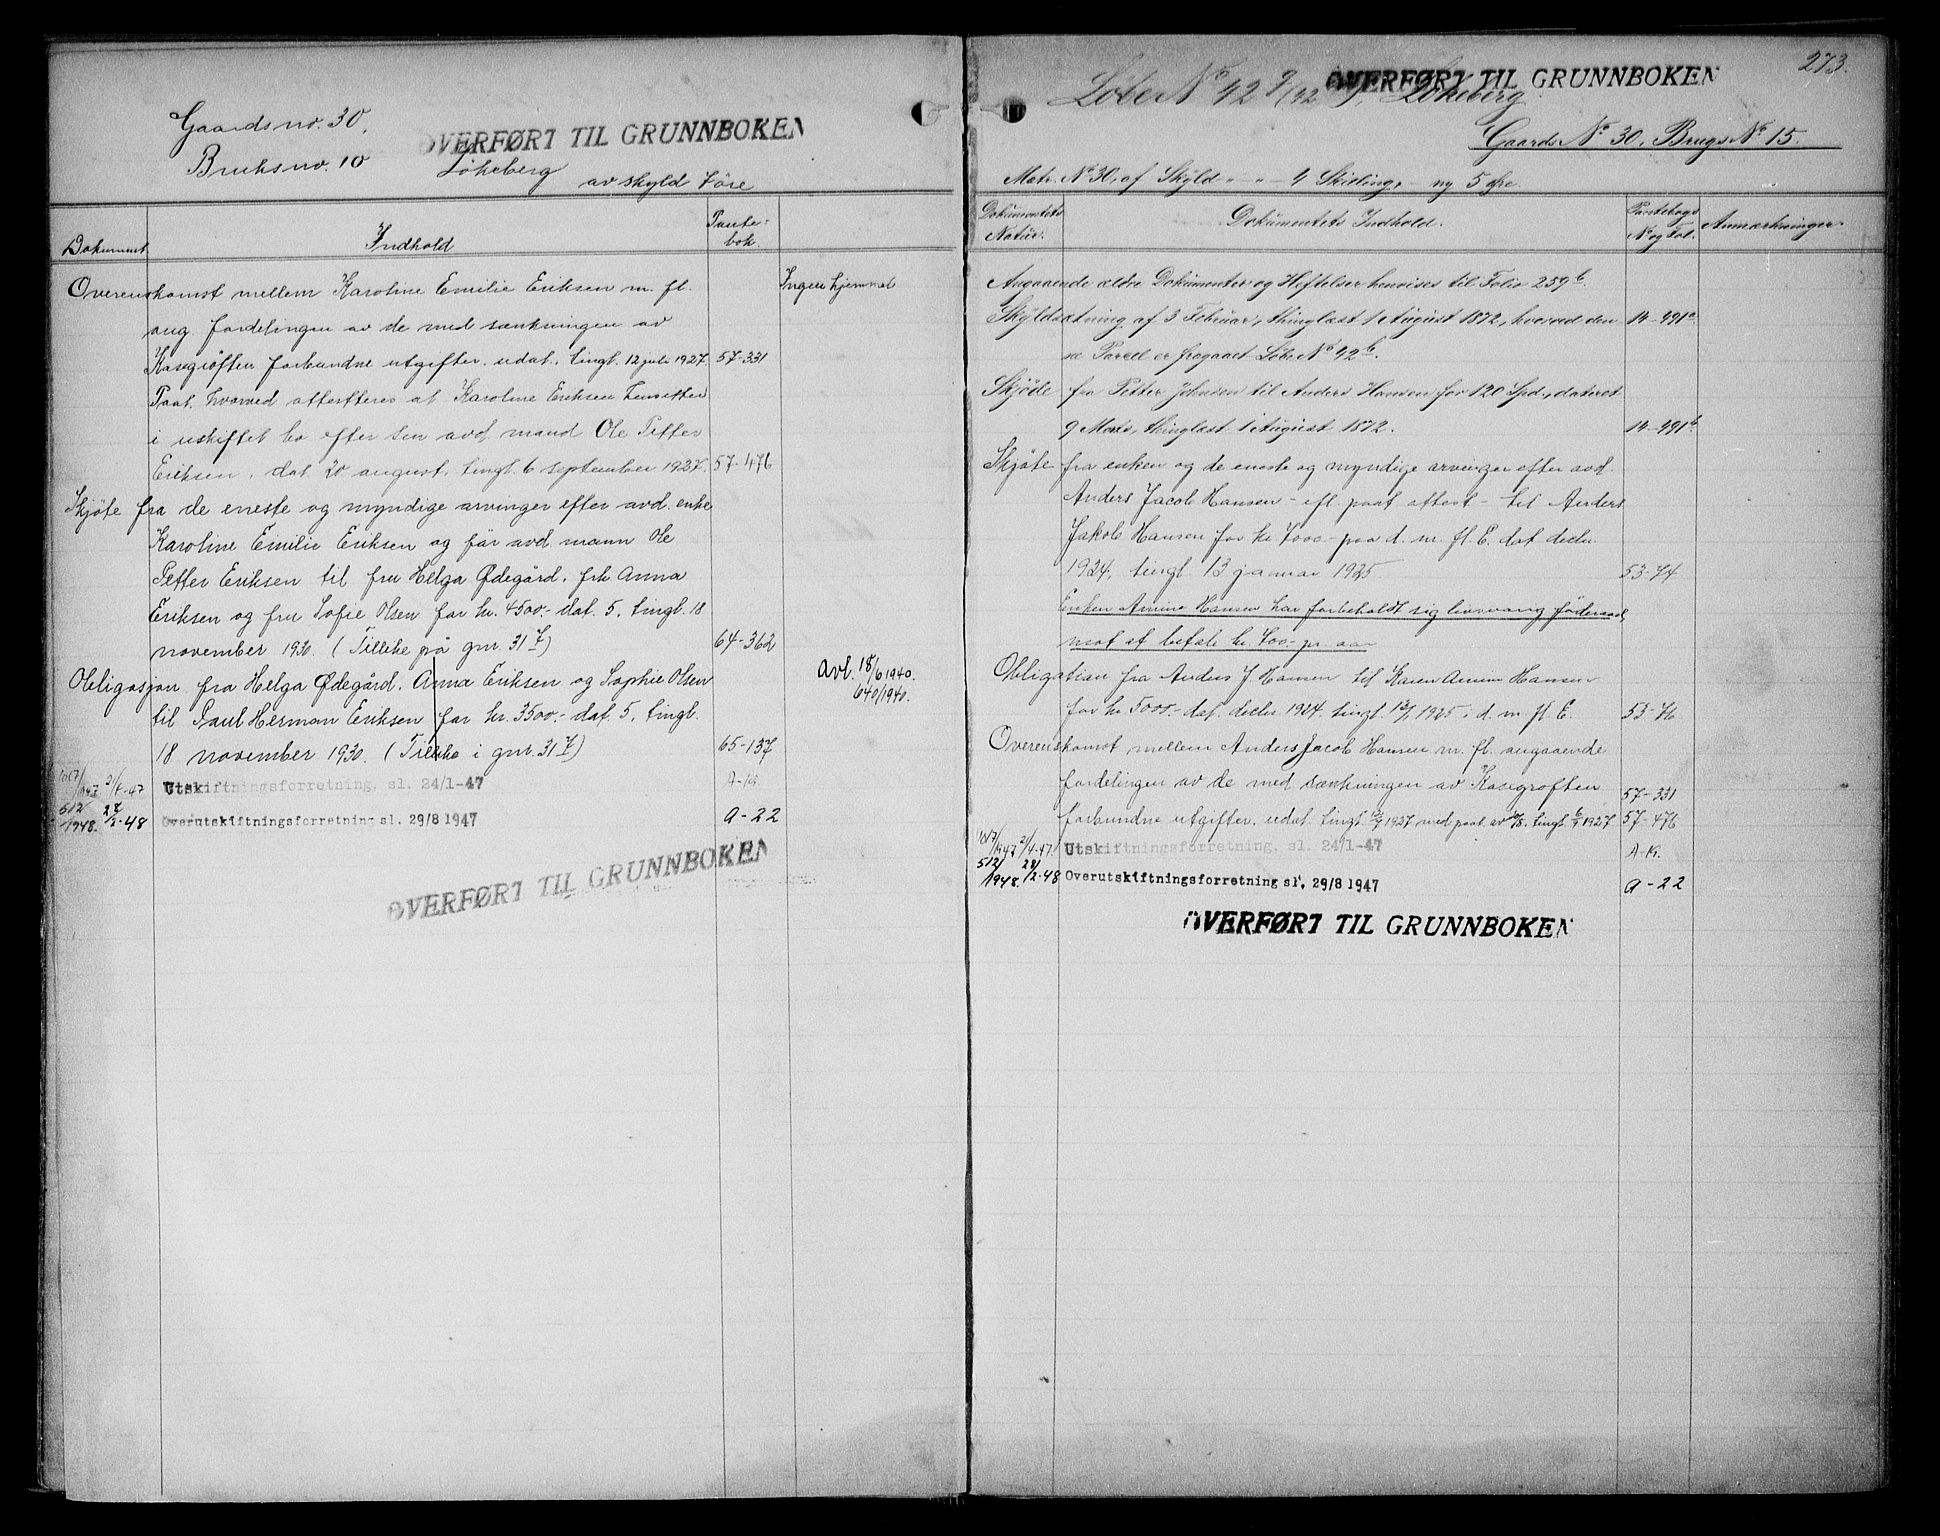 Gaards no. 30.
Bruksno. 10
OVERFØRT TIL GRUNNBOKEN
Løkeberg av skyld 7 øre
Dokument Indhold Pante-
bok.
Overenskomst mellem Karoline Emilie Eriksen m. fl. Ingen hjemmel
ang. fordelingen av de med sænkningen av
Kasegrøften forbundne utgifter. udat. tingl. 12 juli 1927. 57-331
Paat. hvorved attesteres at Karoline Eriksen hensitter
i uskiftet bo efter sen avd. mand Ole Petter
Eriksen. dat 20 august. tingl. 6 september 1927. 57-476
Skjøte fra de eneste og myndige arvinger efter avd. enke
Karoline Emilie Eriksen og før avd. mann Ole
Petter Eriksen til fru Helga Ødegård. frk Anna
Eriksen og fru Sofie Olsen for kr. 4500.- dat. 5. tingl. 18
november 1930. (Tillike på gnr. 31 7) 64-362
Obligasjon fra Helga Ødegård. Anna Eriksen og Sophie Olsen avl. 18/6 1940.
640/1940.
til Paul Herman Eriksen for kr. 3500.- dat. 5. tingl.
18 november 1930. (Tillike i gnr. 31 7) 65-137
1087/1947 21/4-47 Utskiftningsforretning, sl. 24/1-47 A-19.
512/1948. 28/2-48 Overutskiftningsforretning sl. 29/8 1947 a-22
OVERFØRT TIL GRUNNBOKEN
273.
OVERFØRT TIL GRUNNBOKEN
Løbe No 42 Løkeberg.
Gaards No 30, Brugs No 15.
Matr. No 30, af Skyld - - 4 Skilling, ny 5 Øre.
Dokumentets
Natur. Dokumentets Indhold. Pantebogs
No og Fol. Anmærkninger.
Angaaende ældre Dokumenter og Heftelser henvises til Folio 259 b.
Skyldsætning af 3 Februar, thinglæst 1 August 1872, hvorved den- 14-491 a
ne Parcel er fragaaet Løbe No 42 b.
Skjøde fra Petter Johnsen til Anders Hansen for 120 Spd., dateret
9 Marts, thinglæst 1 August 1872. 14-491 b
Skjøte fra enken og de eneste og myndige arvinger efter avd.
Anders Jacob Hansen - efl. paat. attest - til Anders
Jakob Hansen for kr 7000.- paa d. m. fl. E. dat decbr
1924, tingl. 13 januar 1925 53-74
Enken Amine Hansen har forbeholdt sig livsvarig føderaad,
mot at betale kr. 400.- pr. aar
Obligation fra Anders J Hansen til Karen Amine Hansen
for kr 5000.- dat. decbr 1924. tingl 13/1 1925. i d. m. fl E. 53-76
Overenskomst mellem Anders Jacob Hansen m. fl. angaaende
fordelingen av de med sænkningen av Kasegrøften 57-331
forbundne utgifter. udat. tingl. 12/7 1927 med paat. av 20/8. tingl. 6/9 1927 57-476
1087/1947 21/4-47. Utskiftningsforretning, sl. 24/1-47 A-19.
512/1948. 28/2-48 Overutskiftningsforretning sl. 29/8 1947 a-22
OVERFØRT TIL GRUNNBOKEN